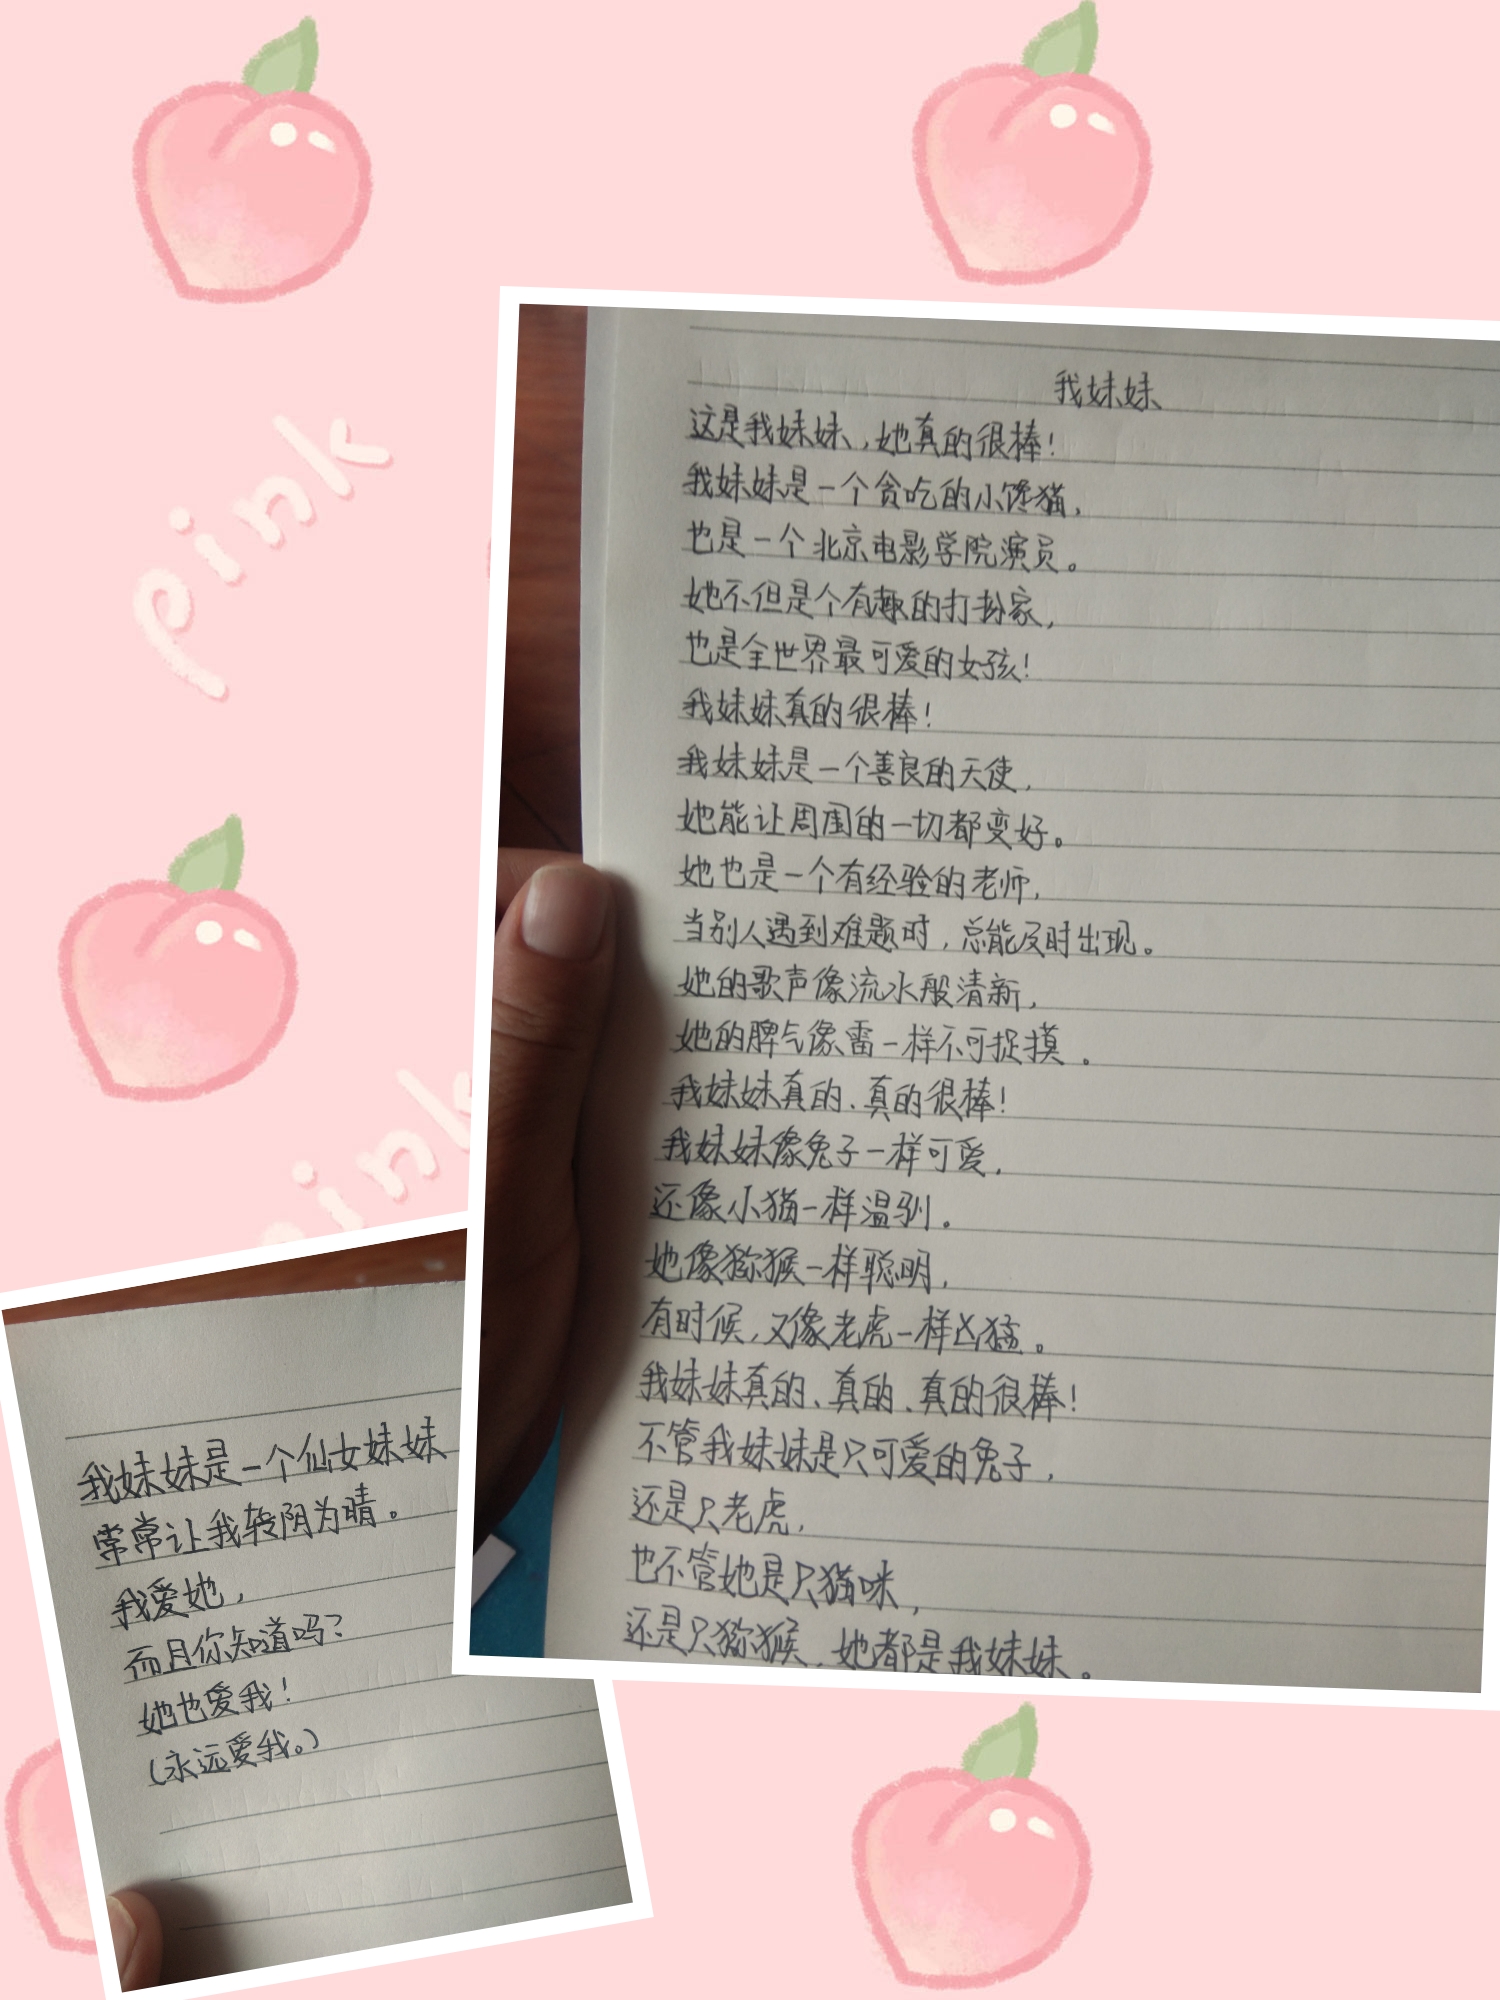 pink
我妹妹
这是我妹妹,她真的很棒!
我妹妹是一个贪吃的小馋猫,
也是一个北京电影学院演员。
她不但是个有趣的打扮家,
也是全世界最可爱的女孩!
我妹妹真的很棒!
我妹妹是一个善良的天使,
她能让周围的一切都变好。
她也是一个有经验的老师,
当别人遇到难题时,总能及时出现。
她的歌声像流水般清新,
她的脾气像雷一样不可捉摸。
我妹妹真的、真的很棒!
我妹妹像兔子一样可爱,
还像小猫一样温驯。
她像猕猴一样聪明,
有时候,又像老虎一样凶猛。
我妹妹真的、真的、真的很棒!
不管我妹妹是只可爱的兔子,
还是只老虎,
也不管她是只猫咪,
还是只猕猴,她都是我妹妹。
pink
我妹妹是一个仙女妹妹
常常让我转阴为晴。
我爱她,
而且你知道吗?
她也爱我!
(永远爱我。)